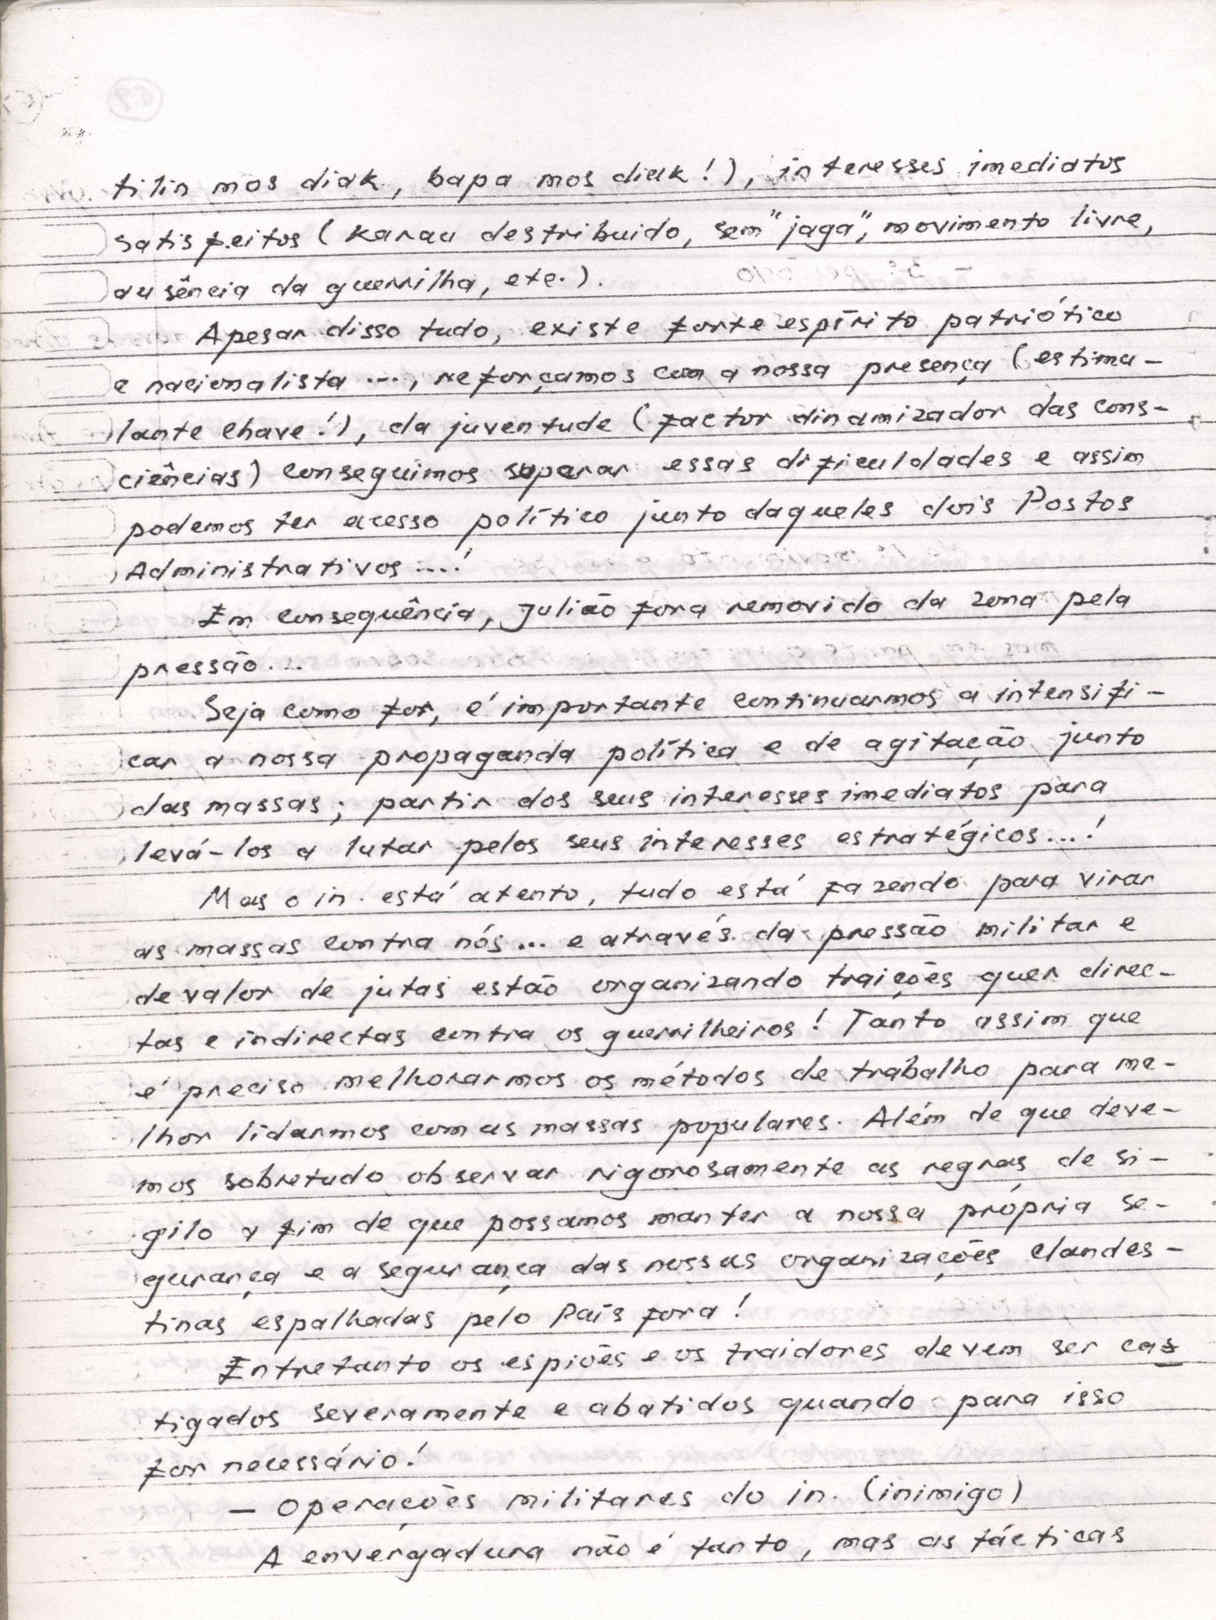 tilin mos diak, bapa mos diak!), interesses imediatos
satisfeitos (karau destribuido, sem "jaga", movimento livre,
ausência da guerrilha, etc.).
Apesar disso tudo, existe forte espírito patriótico
e nacionalista ..., reforçamos com a nossa presença (estimu-
lante chave!), da juventude (factor dinamizador das cons-
ciências) conseguimos superar essas dificuldades e assim
podemos ter acesso político junto daqueles dois Postos
Administrativos ...!
Em consequência, Julião fora removido da zona pela
pressão...
Seja como for, é importante continuarmos a intensifi-
car a nossa propaganda política e de agitação junto
das massas; partir dos seus interesses imediatos para
levá-los a lutar pelos seus interesses estratégicos...!
Mas o in. está atento, tudo está fazendo para virar
as massas contra nós... e através da pressão militar e
de valor de jutas estão organizando traições quer direc-
tas e indirectas contra os guerrilheiros! Tanto assim que
é preciso melhorarmos os métodos de trabalho para me-
lhor lidarmos com as massas populares. Além de que deve-
mos sobretudo observar rigorosamente as regras de si-
gilo a fim de que possamos manter a nossa própria se-
gurança e a segurança das nossas organizações clandes-
tinas espalhadas pelo País fora!
Entretanto os espiões e os traidores devem ser cas
tigados severamente e abatidos quando para isso
for necessário!
- Operações militares do in. (inimigo)
A envergadura não é tanto, mas as tácticas